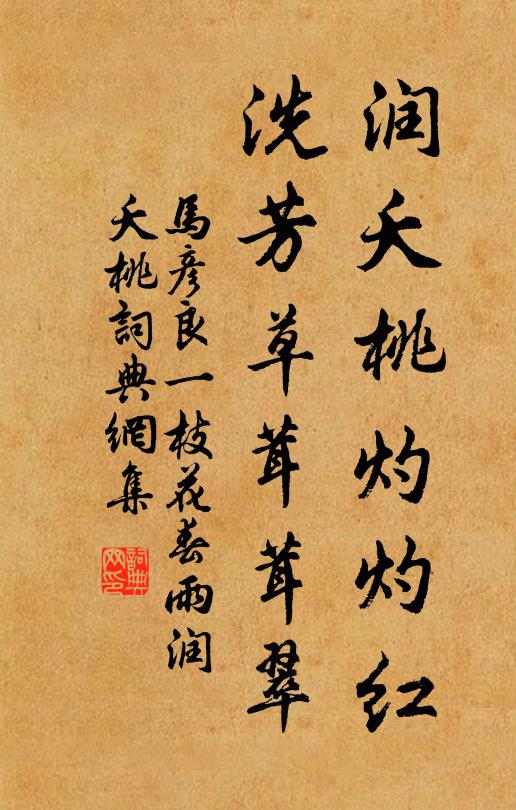 润夭桃灼灼红
洗芳草茸茸翠
馬彦良一枝花春雨润
夭桃詞典網集
詞典
网印